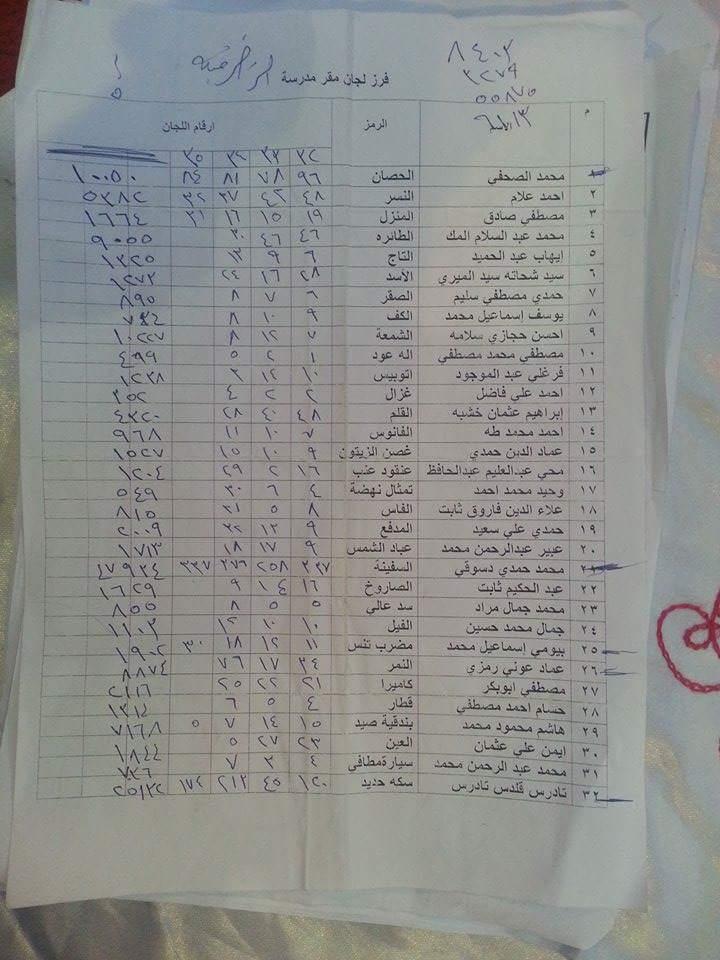 ٨٤٠٢
٢٢٧٩
٥٥٨٧٥
فرز لجان مقر مدرسة
م
الرمز
ارقام اللجان
٣٢ ٣٣ ٣٤ ٣٥
١ محمد الصحفي الحصان ٩٦ ٧٨ ٨١ ٨٤ ١٠٠٥٠
٢ احمد علام النسر ٤٨ ٤٤ ٢٧ ٣٢ ٥٣٨٢
٣ مصطفي صادق المنزل ١٩ ١٥ ١٦ ٢١ ١٦٦٤
٤ محمد عبد السلام المك الطائره ٤٦ ٤٦ ٣٠ ٩٠٥٥
٥ إيهاب عبد الحميد التاج ٦ ٩ ١٣ ١٣٢٥
٦ سيد شحاته سيد الميري الأسد ٢٨ ١٦ ٢٤ ١٢٧٢
٧ حمدي مصطفي سليم الصقر ٦ ٧ ٨ ٨٩٥
٨ يوسف إسماعيل محمد الكف ٩ ١٠ ٨
٩ احسن حجازي سلامه الشمعة ٧ ١٢ ٨ ١٠٢٢٧
١٠ مصطفي محمد مصطفي اله عود ١ ٢ ٥ ٤٩٩
١١ فرغلي عبد الموجود اتوبيس ١٠ ١٤ ٢ ١٢٣٨
١٢ احمد علي فاضل غزال ٢ ٢ ٤ ٢٥٢
١٣ إبراهيم عثمان خشبه القلم ٤٨ ٤٠ ٢٨ ٤٢٢٠
١٤ احمد محمد طه الفانوس ٧ ١٠ ١١ ٩٦٨
١٥ عماد الدين حمدي غصن الزيتون ٩ ١٠ ١٥ ١٥٢٧
١٦ محي عبدالعليم عبدالحافظ عنقود عنب ١٦ ٢ ٢٩ ١٢٠٤
١٧ وحيد محمد احمد تمثال نهضة ٤ ٦ ٣٠ ٥٤٩
١٨ علاء الدين فاروق ثابت الفاس ٨ ٥ ٢١ ٨١٥
١٩ حمدي علي سعيد المدفع ٩ ١٢ ٢٢ ٢٠٠٩
٢٠ عبير عبدالرحمن محمد عباد الشمس ٩ ١٧ ١٨ ١٧١٣
٢١ محمد حمدي دسوقي السفينة ٢٣٧ ٢٥٨ ٢٧٦ ٣٣٧ ٤٧٩٢٤
٢٢ عبد الحكيم ثابت الصاروخ ١٦ ١٤ ٩ ١٦٢٩
٢٣ محمد جمال مراد سد عالي ٥ ٥ ٨ ٨٥٥
٢٤ جمال محمد حسين الفيل ١٠ ١٠ ١٢ ١١٠٢
٢٥ بيومي إسماعيل محمد مضرب تنس ١١ ١٢ ١٨ ٣٠ ١٩٠٢
٢٦ عماد عوني رمزي النمر ٣٤ ١٧ ٧٦ ٨٨٧٤
٢٧ مصطفي ابوبكر كاميرا ٢١ ٢٢ ٢٥ ٢١١٦
٢٨ حسام احمد مصطفي قطار ٤ ٥ ٦ ١٣١٤
٢٩ هاشم محمود محمد بندقية صيد ١٥ ١٤ ٧ ٥ ٧١٦٨
٣٠ ايمن علي عثمان العين ٢٣ ٢٧ ٥ ١٨٤٤
٣١ محمد عبد الرحمن محمد سيارةمطافي ٤ ٣ ٧ ٧٢٦
٣٢ تادرس قلدس تادرس سكه حديد ١٢٠ ٤٥ ٢١٢ ١٧٤ ٢٥١٢٢